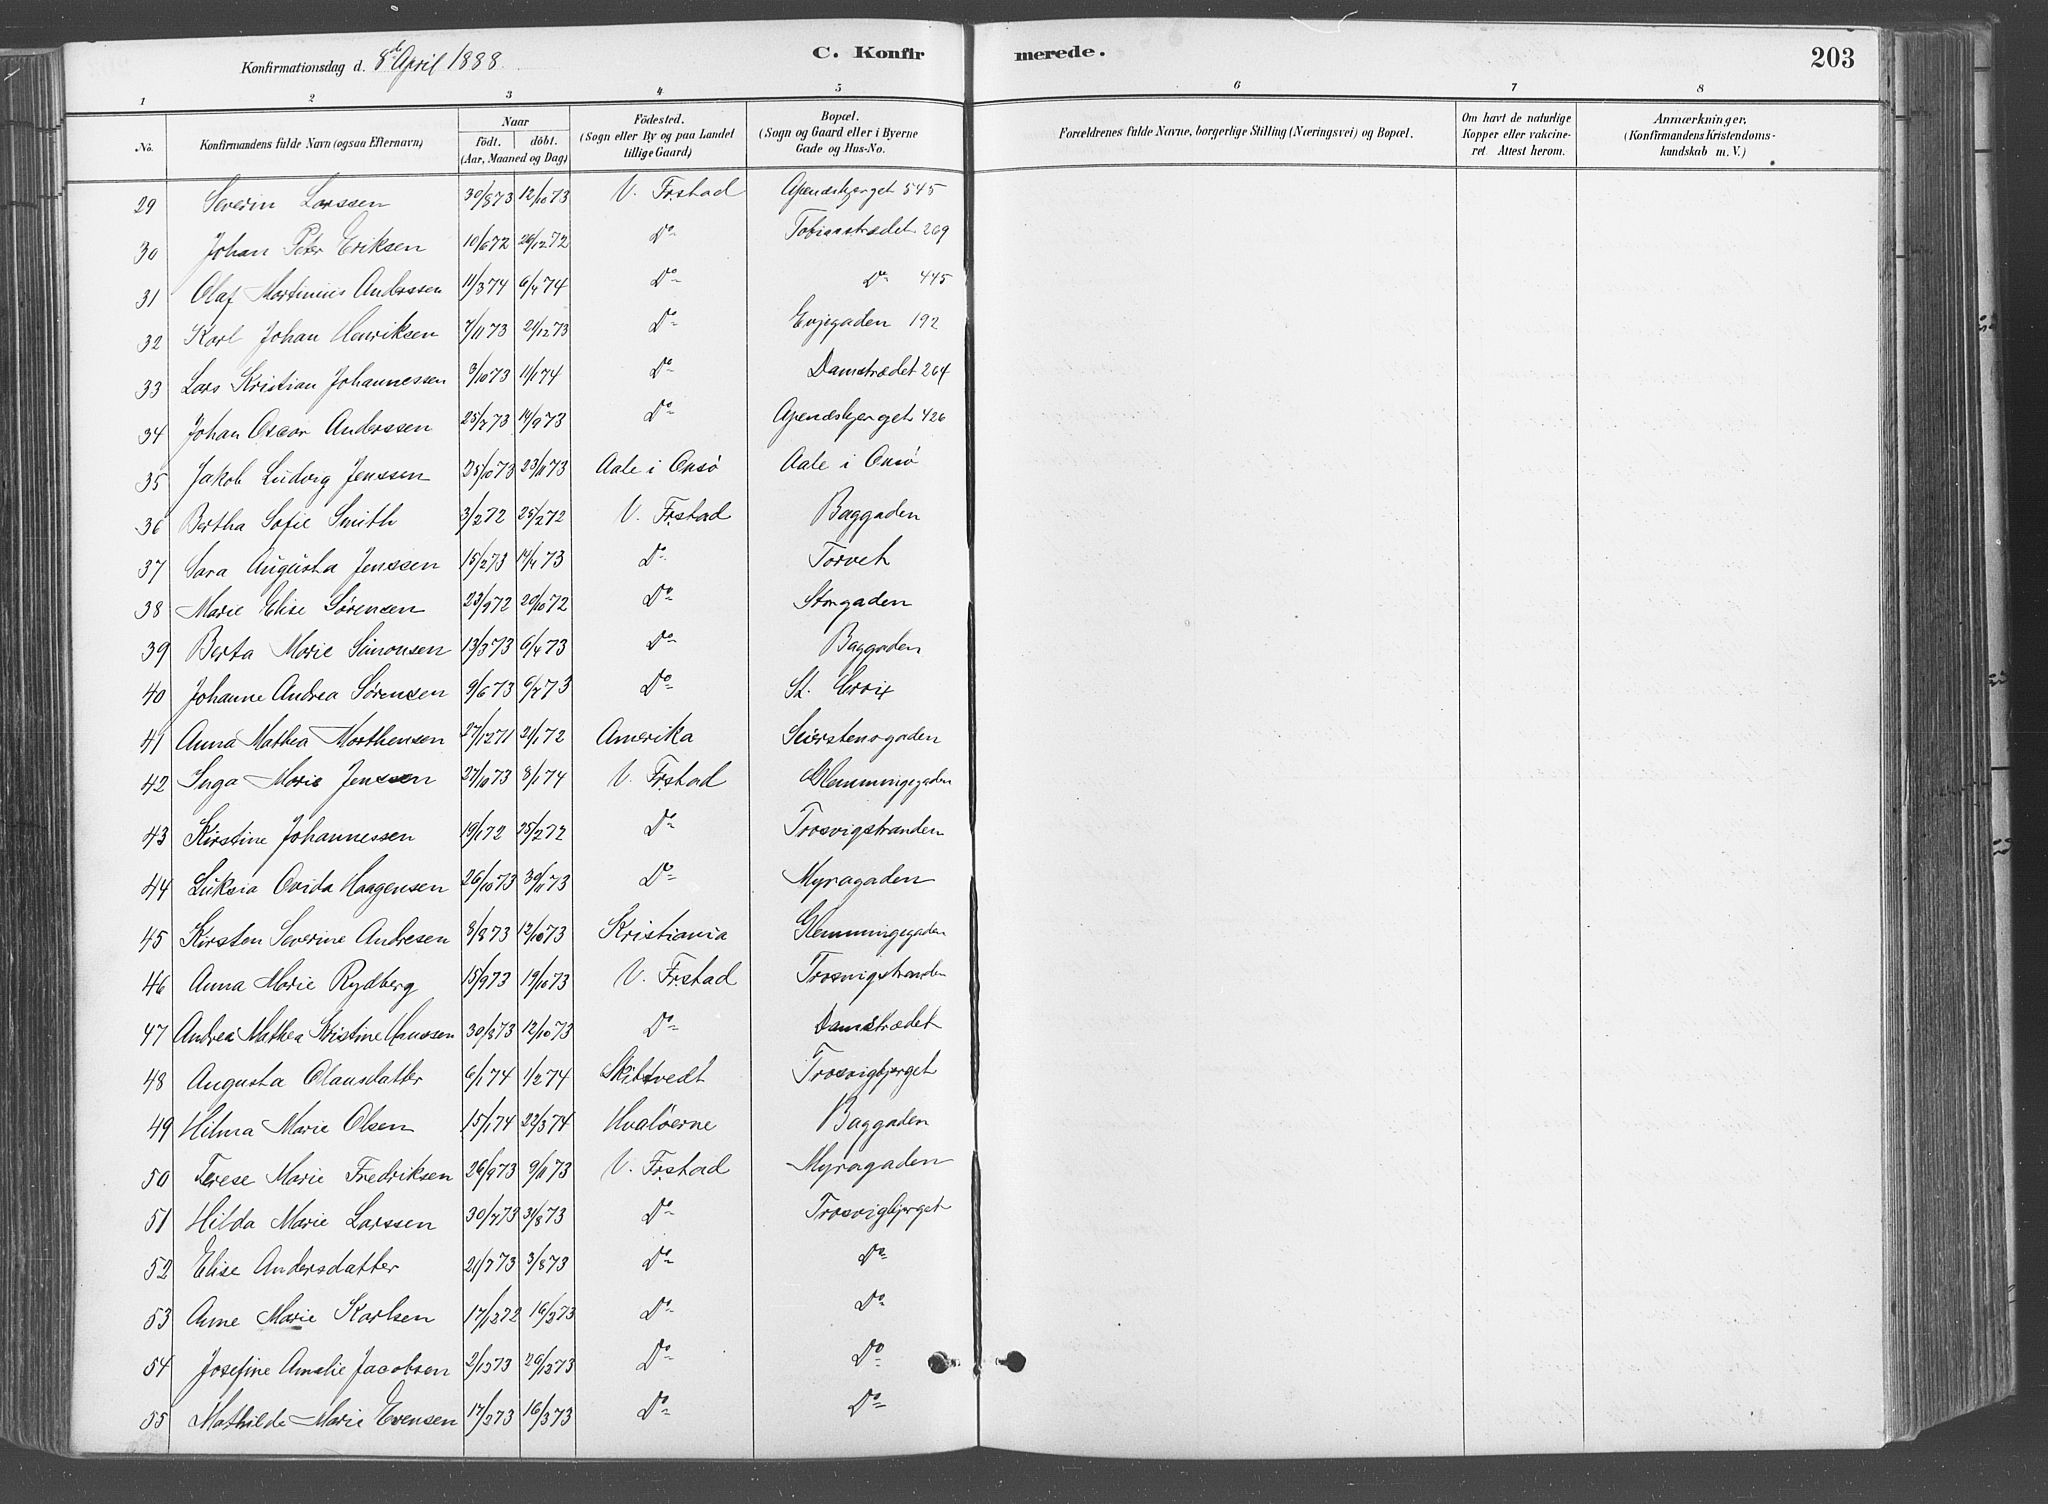 Konfirmationsdag d. 8de April 1888. C. Konfirmerede. 203
1 2 3 4 5 6 7 8
No. Konfirmandens fulde Navn (ogsaa Efternavn) Naar födt. döbt. (Aar, Maaned og Dag) Födested. (Sogn eller By og paa Landet tillige Gaard) Bopæl. (Sogn og Gaard eller i Byerne Gade og Hus-No. Forældrenes fulde Navne, borgerlige Stilling (Næringsvei) og Bopæl. Om havt de naturlige Kopper eller vakcineret. Attest herom. Anmærkninger. (Konfirmandens Kristendomskundskab m. V.)
29 Severin Larssen 30/8 73 12/10 73 V. Fr.stad Apenæsbjerget 545
30 Johan Peter Eriksen 10/6 72 26/12 72 Do Tobiasstrædet 269
31 Olaf Martinius Anderssen 11/3 74 6/4 74 Do Do 445
32 Karl Johan Henriksen 7/11 73 21/12 73 Do Evjegaden 192
33 Lars Kristian Johannessen 3/10 73 11/1 74 Do Damstrædet 264
34 Johan Oscar Anderssen 25/7 73 14/9 73 Do Apenæsbjerget 426
35 Jakob Ludvig Jenssen 25/10 73 23/11 73 Aale i Onsø Aale i Onsø
36 Bertha Sofie Smith 3/2 72 25/2 72 V. Fr.stad Baggaden
37 Sara Augusta Jenssen 15/2 73 14/4 73 Do Torvet
38 Marie Elise Sørensen 23/9 72 20/10 72 Do Storgaden
39 Berta Marie Simonsen 13/3 73 6/4 73 Do Baggaden
40 Johanne Andrea Sørensen 9/6 73 6/7 73 Do St. Croix
41 Anna Mathea Morthensen 27/12 71 21/1 72 Amerika Seierstensgaden
42 Inga Marie Jenssen 27/10 73 8/1 74 V. Fr.stad Glemmingegaden
43 Kirstine Johannessen 19/1 72 25/2 72 Do Trosvigstranden
44 Luksia Ovida Haagensen 26/10 73 30/11 73 Do Myragaden
45 Kirsten Severine Andresen 8/8 73 12/10 73 Kristiania Glemmingegaden
46 Anna Marie Rydberg 15/9 73 19/10 73 V. Fr.stad Trosvigstranden
47 Andrea Mathea Kristine Hanssen 30/8 73 12/10 73 Do Damstrædet
48 Augusta Olausdatter 6/1 74 1/2 74 Skibtvedt Trosvigbjerget
49 Hilma Marie Olsen 15/1 74 22/3 74 Hvaløerne Baggaden
50 Terese Marie Fredriksen 26/9 73 9/11 73 V. Fr.stad Myragaden
51 Hilda Marie Larssen 30/7 73 31/8 73 Do Trosvigbjerget
52 Elise Andersdatter 21/7 73 3/8 73 Do Do
53 Anne Marie Karlsen 17/12 72 16/3 73 Do Do
54 Josefine Amalie Jacobsen 2/12 73 26/12 73 Do Do
55 Mathilde Marie Evensen 17/2 73 16/3 73 Do Do